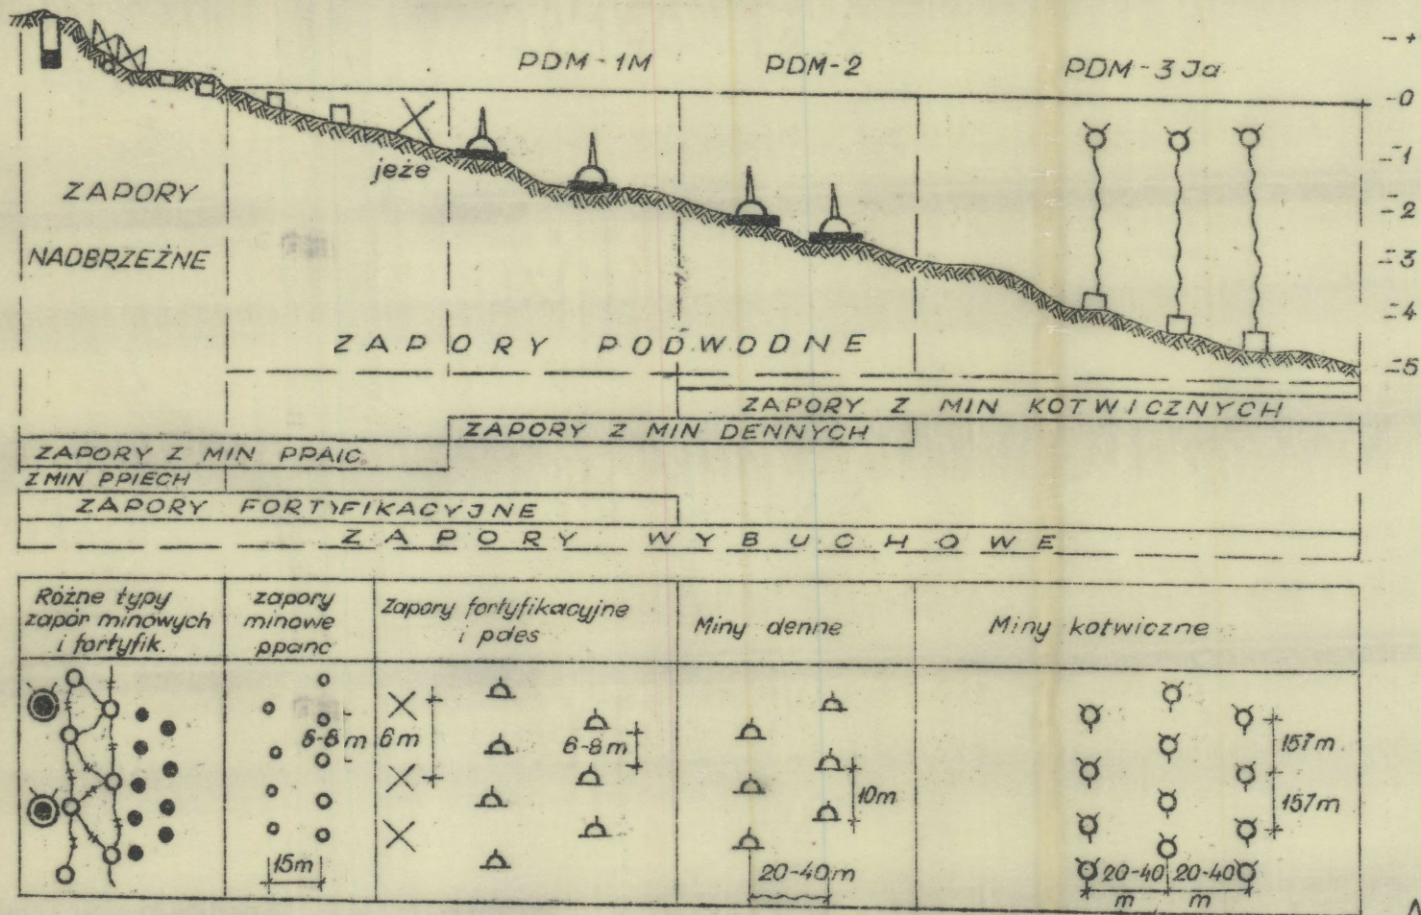 PDM-1M
PDM-2
PDM-3Ja
+
-0
-1
-2
-3
-4
-5
jeże
ZAPORY
NADBRZEŻNE
ZAPORY PODWODNE
ZAPORY Z MIN KOTWICZNYCH
ZAPORY Z MIN DENNYCH
ZAPORY Z MIN PPAIC.
Z MIN PPIECH
ZAPORY FORTYFIKACYJNE
ZAPORY WYBUCHOWE
Różne typy
zapór minowych
i fortyfik.
zapory
minowe
ppanc
Zapory fortyfikacyjne
i pdes
Miny denne
Miny kotwiczne
6-8m
6m
6-8m
10m
157m
157m
15m
20-40m
20-40
m
20-40
m